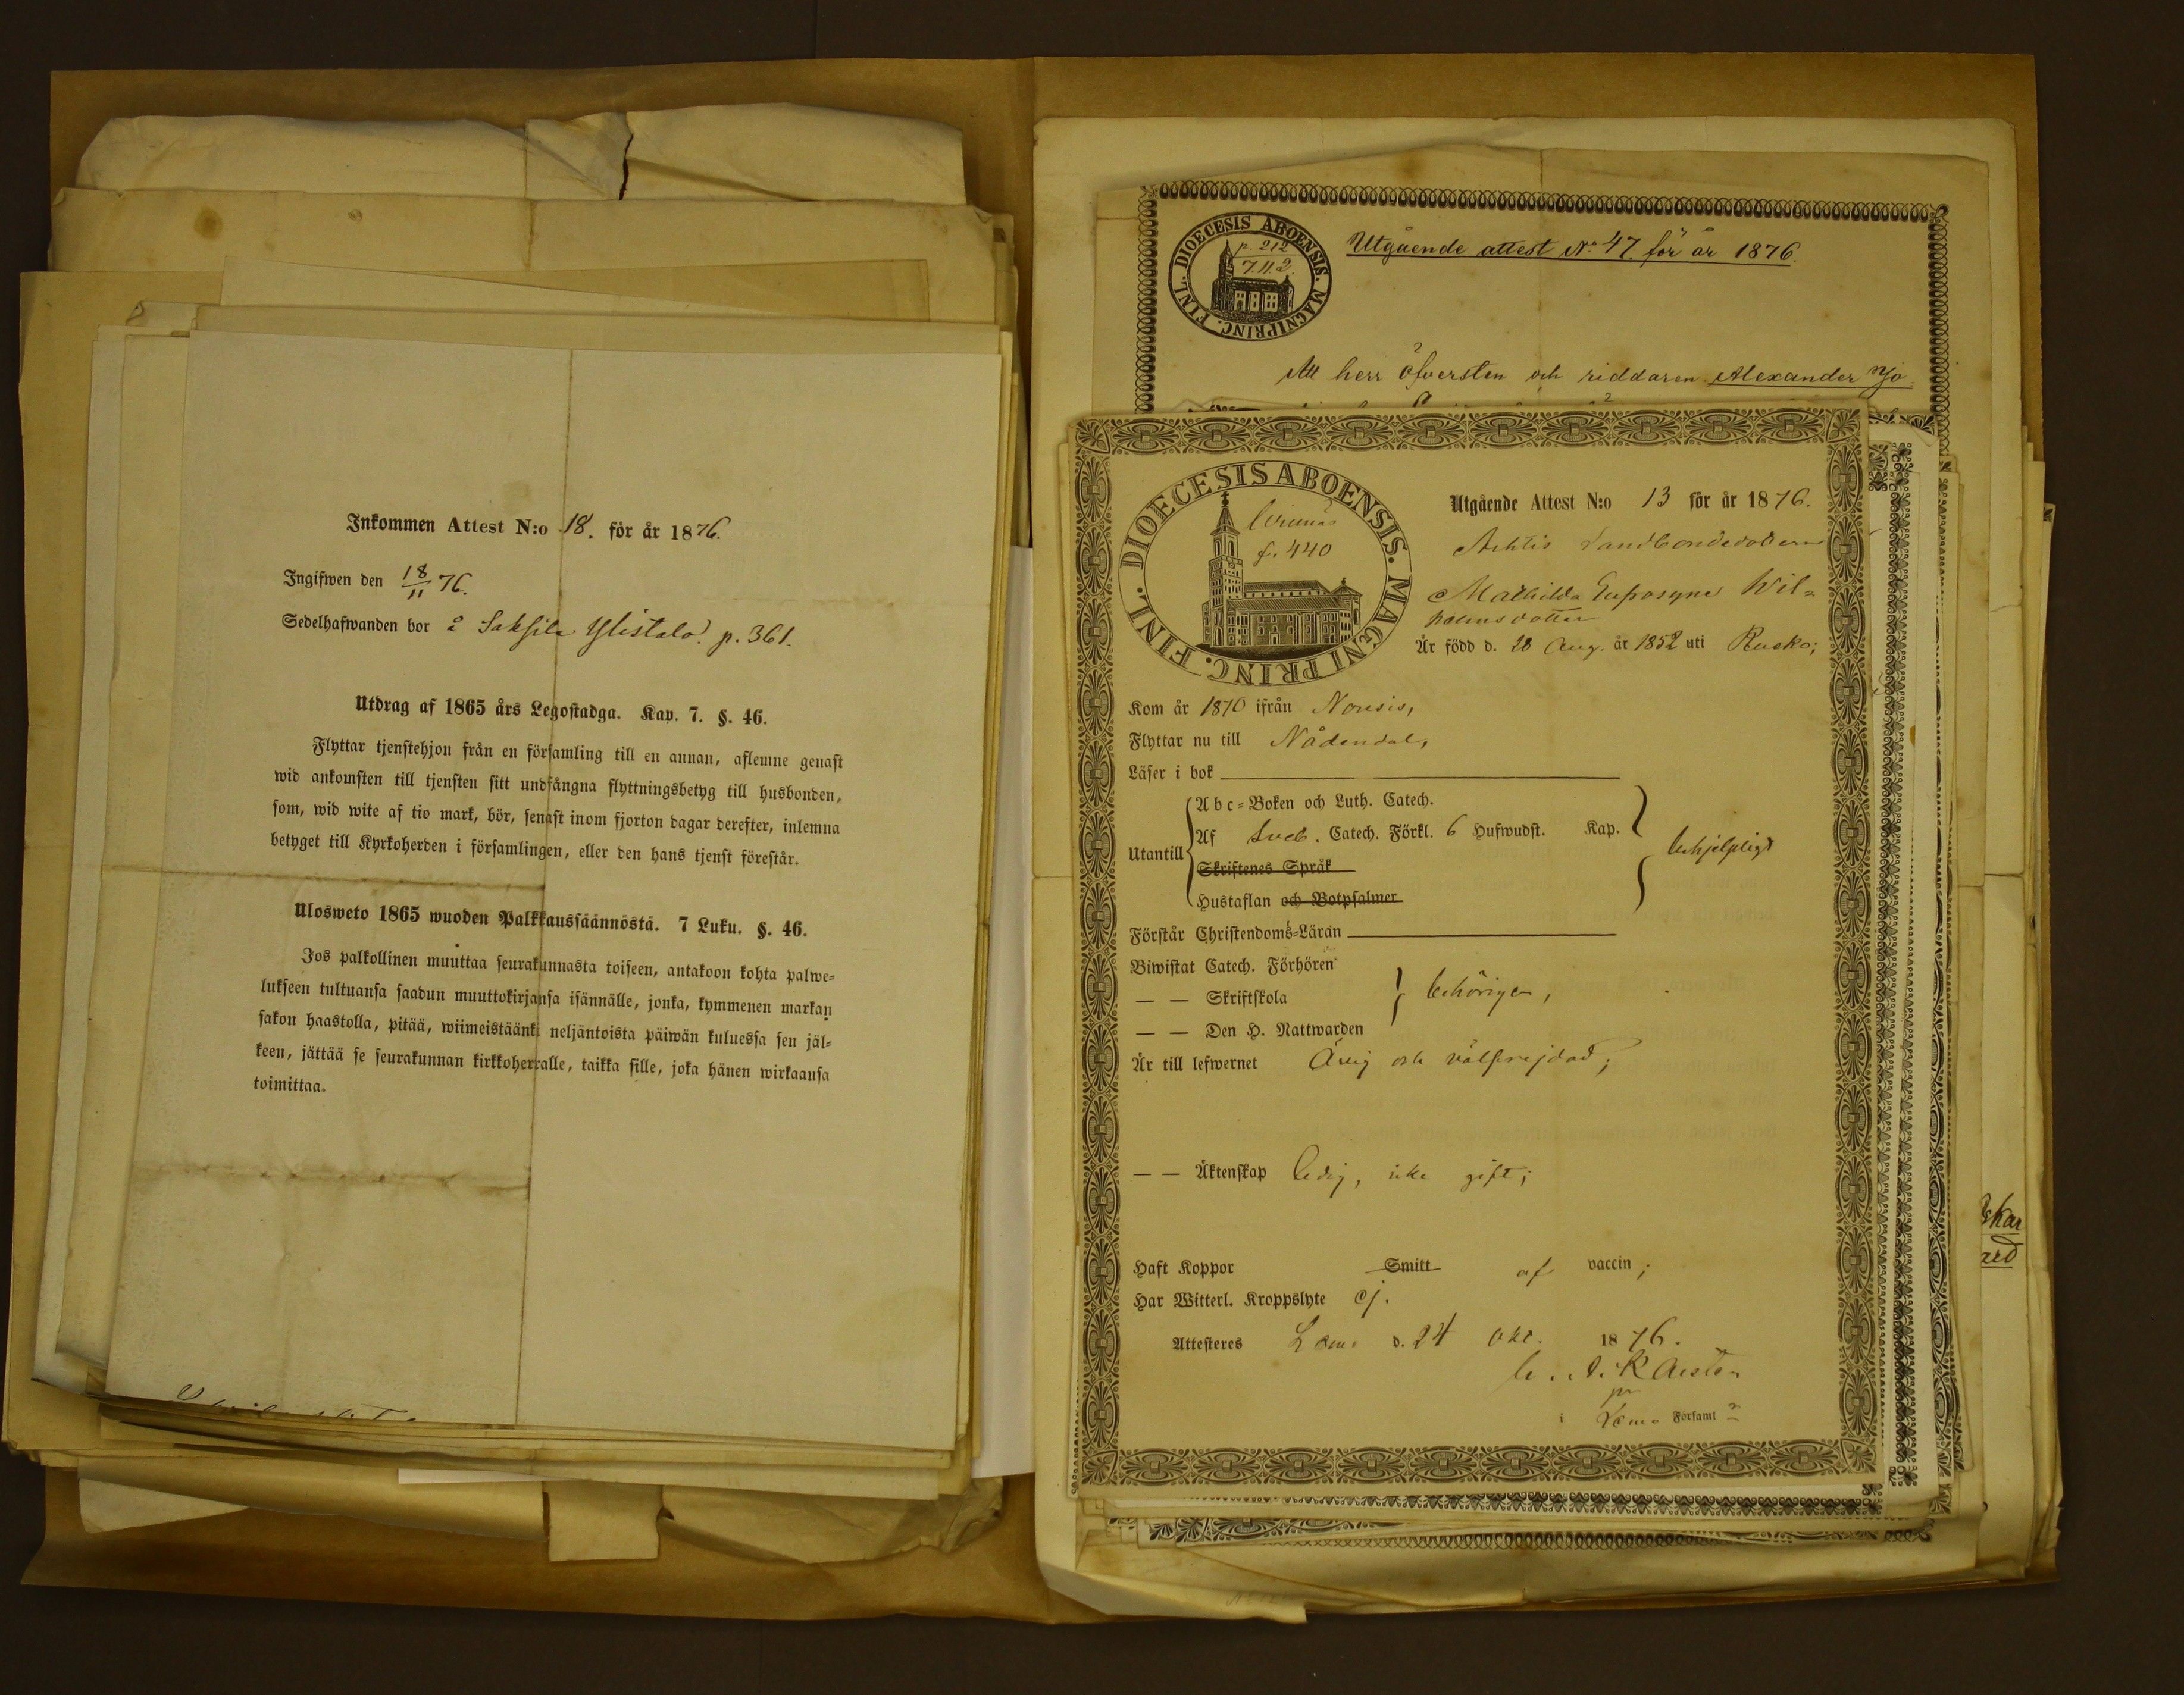 Inkommen Attest N:o 18. för år 1876.
Ingifwen den 18/11 76.
Sedelhafwanden bor å Saksila Ylistalo. p. 361.
Utdrag af 1865 års Legostadga. Kap. 7. §. 46.
Flyttar tjenstehjon från en församling till en annan, aflemne genast
wid ankomsten till tjensten sitt undfångna flyttningsbetyg till husbonden,
som, wid wite af tio mark, bör, senast inom fjorton dagar derefter, inlemna
betyget till Kyrkoherden i församlingen, eller den hans tjenst förestår.
Ulosweto 1865 wuoden Palkkaussäännöstä. 7 Luku. §. 46.
Jos palkollinen muuttaa seurakunnasta toiseen, antakoon kohta palwe-
lukseen tultuansa saadun muuttokirjansa isännälle, jonka, kymmenen markan
sakon haastolla, pitää, wiimeistäänki neljäntoista päiwän kuluessa sen jäl-
keen, jättää se seurakunnan kirkkoherralle, taikka sille, joka hänen wirkaansa
toimittaa.
DIOECESIS ABOENSIS. MAGNI PRINC. FINL.
p. 212
7.11.2.
Utgående attest No 47. för år 1876.
Att herr öfversten och riddaren Alexander
DIOECESIS ABOENSIS. MAGNI PRINC. FINL.
440
Utgående Attest N:o 13 för år 1876.
Landbondedottern
Mathilda Euprosyne Wil-
helmsdotter
Är född d. 28 Aug. år 1852 uti Rusko;
Kom år 1870 ifrån Nousis,
Flyttar nu till Nådendal,
Läser i bok
Utantill
Abc-Boken och Luth. Catech.
Af Sveb. Catech. Förkl. 6 Hufwudst. Kap.
Skriftenes Språk
Hustaflan och Botpsalmer
behjelpligt
Förstår Christendoms-Läran
Biwistat Catech. Förhören
— — Skriftskola
— — Den H. Nattwarden
behörigen,
Är till lefwernet Ärlig och välfrejdad;
— — Äktenskap ledig, icke gift;
Haft Koppor Smitt af vaccin;
Har Witterl. Kroppslyte ej.
Attesteres Lemo d. 24 Okt. 1876.
i Lemo Församl